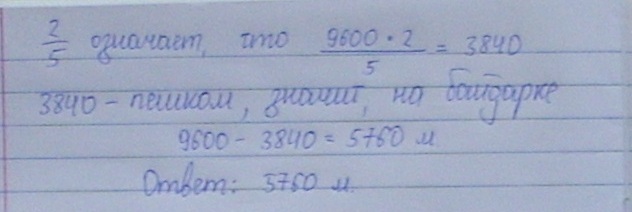 2/5 означает, что (9600 · 2)/5 = 3840
3840 - пешком, значит, на байдарке
9600 - 3840 = 5760 м
Ответ: 5760 м.